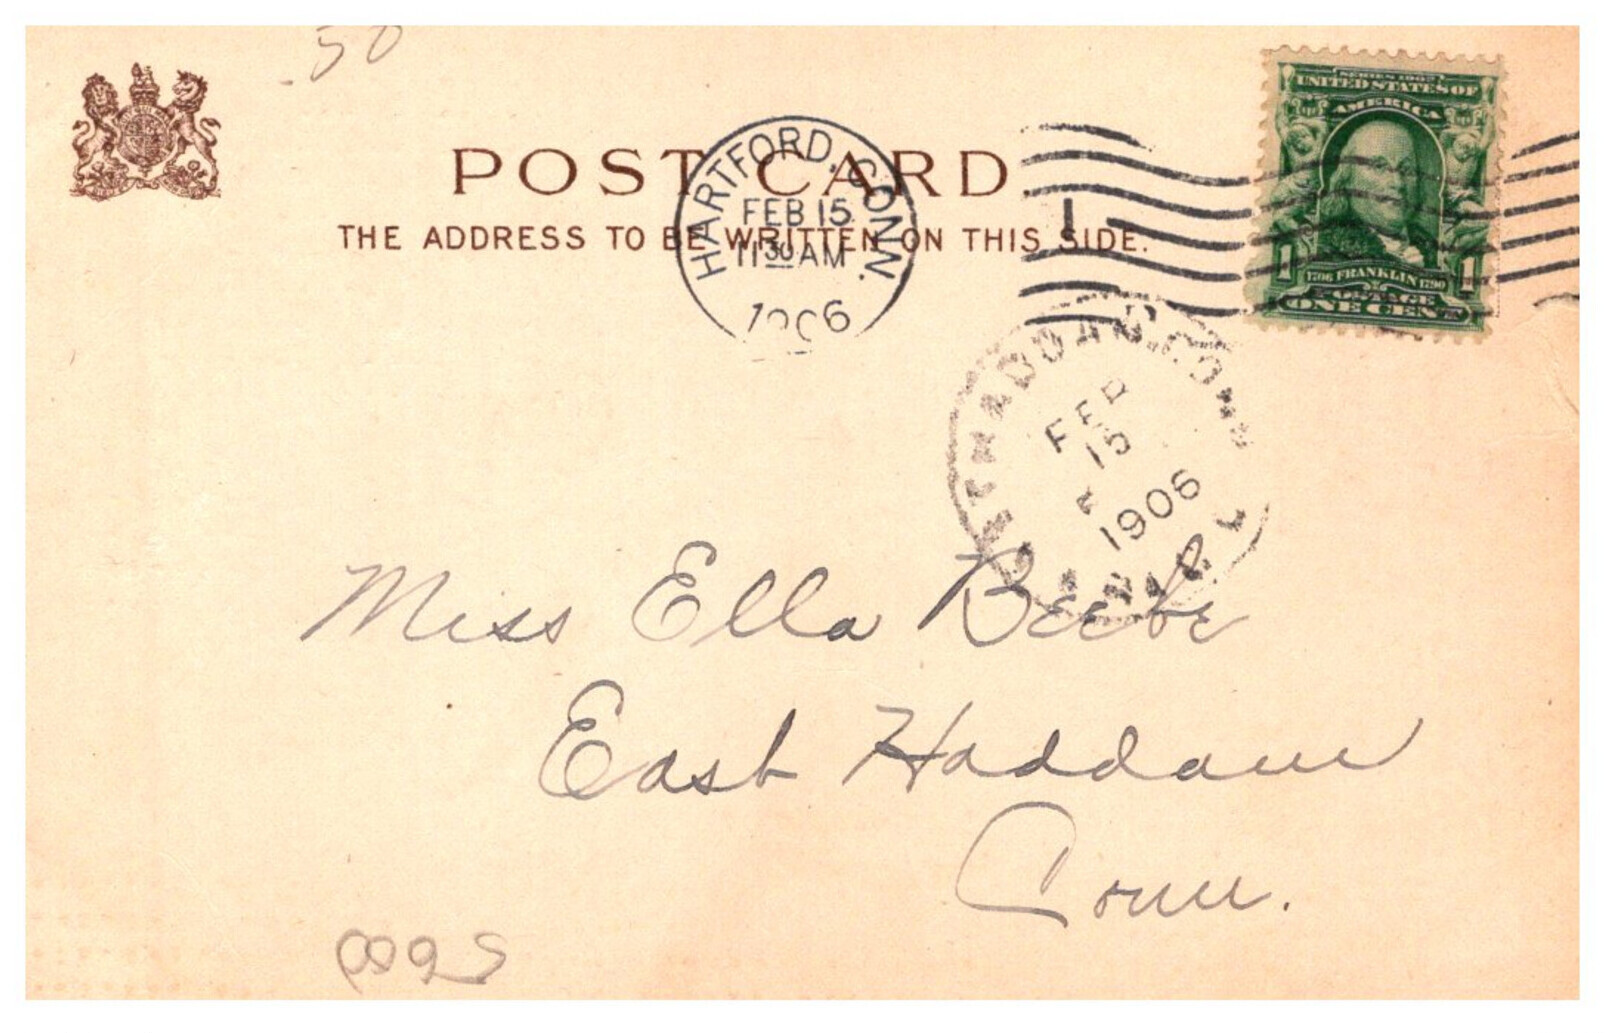 50
SERIES 1902
UNITED STATES OF
AMERICA
POST CARD
HARTFORD, CONN.
FEB 15
11 30 AM
1906
THE ADDRESS TO BE WRITTEN ON THIS SIDE.
1
1
1706 FRANKLIN 1790
POSTAGE
ONE CENT
1
HADDAM. CONN
FEB
15
1906
Miss Ella Beebe
East Haddam
Conn.